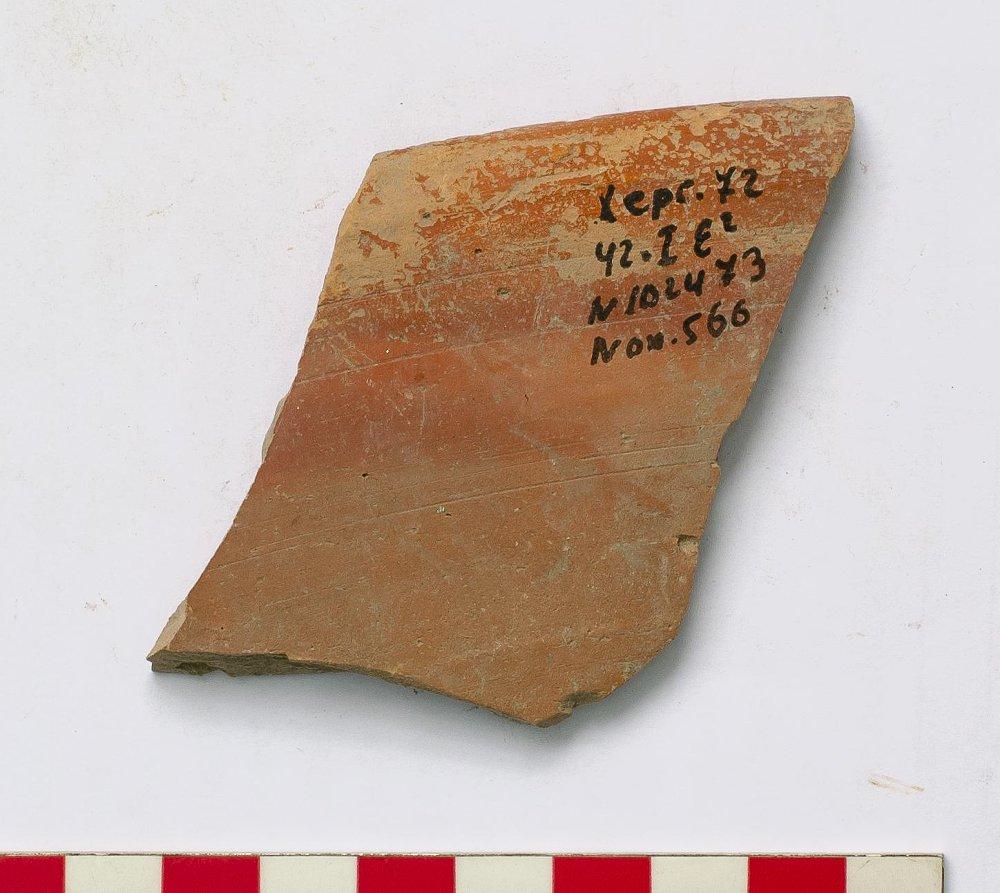 Херс.72
уч.I Е²
N102473
№оп.566